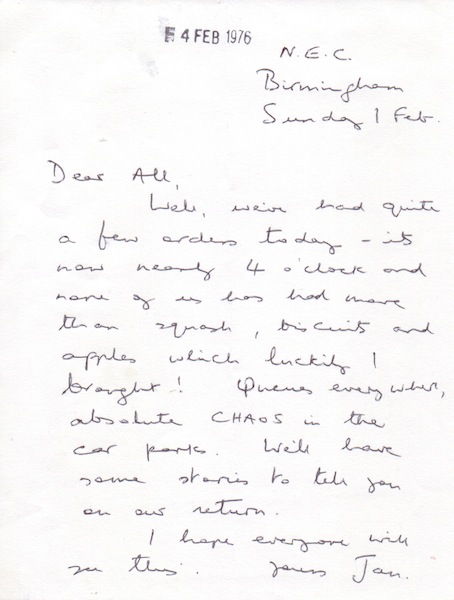 E 4 FEB 1976
N.E.C.
Birmingham
Sunday 1 Feb.
Dear All,
Well, we've had quite
a few orders today - it's
now nearly 4 o'clock and
none of us has had more
than squash, biscuits and
apples which luckily I
brought! Queues everywhere,
absolute CHAOS in the
car parks. We'll have
some stories to tell you
on our return.
I hope everyone will
see this. Yours Jan.